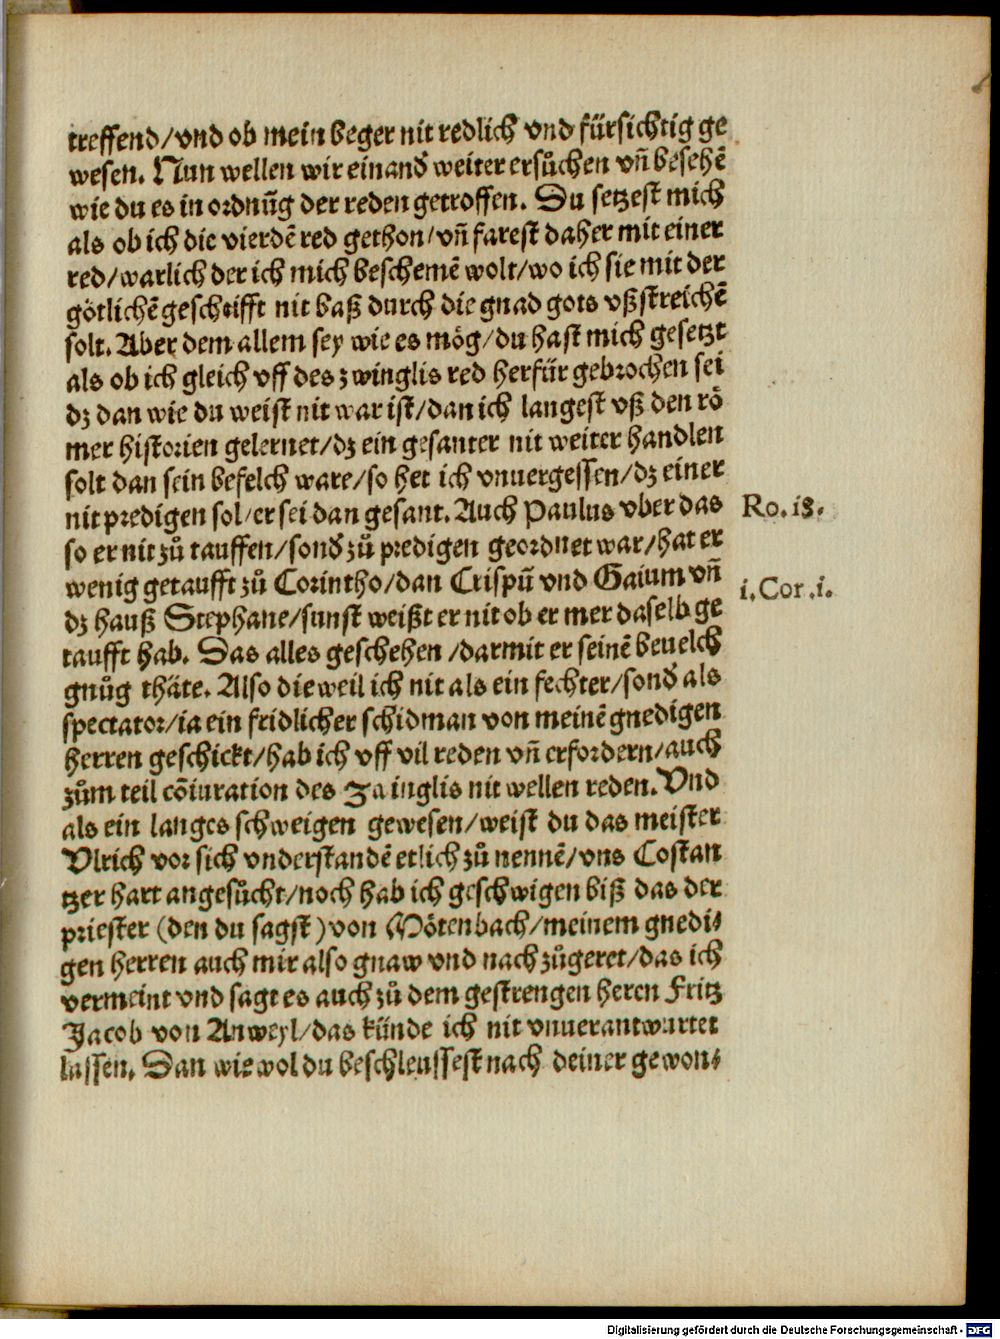 treffend/vnd ob mein beger nit redlich vnd fürsichtig ge
wesen. Nun wellen wir einanď weiter ersůchen vñ besehẽ
wie du es in ordnũg der reden getroffen. Du setzest mich
als ob ich die vierdẽ red gethon/vñ farest daher mit einer
red/warlich der ich mich beschemẽ wolt/wo ich sie mit der
götlichẽ geschrifft nit baß durch die gnad gots vßstreichẽ
solt. Aber dem allem sey wie es mög/du hast mich gesetzt
als ob ich gleich vff des zwinglis red herfür gebrochen sei
dz dan wie du weist nit war ist/dan ich langest vß den rö
mer historien gelernet/dz ein gesanter nit weiter handlen
solt dan sein befelch ware/so het ich vnuergessen/dz einer
nit predigen sol/er sei dan gesant. Auch Paulus vber das
Ro.i8.
so er nit zů tauffen/sonď zů predigen geordnet war/hat er
wenig getaufft zů Corintho/dan Crispũ vnd Gaium vñ
i.Cor.i.
dz hauß Stephane/sunst weißt er nit ob er mer daselb ge
taufft hab. Das alles geschehen/darmit er seinẽ beuelch
gnůg thäte. Also dieweil ich nit als ein fechter/sonď als
spectator/ia ein fridlicher schidman von meinẽ gnedigen
herren geschickt/hab ich vff vil reden vñ erfordern/auch
zům teil cõiuration des Zuinglis nit wellen reden. Vnd
als ein langes schweigen gewesen/weist du das meister
Vlrich vor sich vnderstandẽ etlich zů nennẽ/vns Costan
tzer hart angesůcht/noch hab ich geschwigen biß das der
priester (den du sagst) von Mötenbach/meinem gnedi⸗
gen herren auch mir also gnaw vnd nach zůgeret/das ich
vermeint vnd sagt es auch zů dem gestrengen heren Fritz
Jacob von Anweyl/das künde ich nit vnuerantwurtet
lassen. Dan wie wol du beschleussest nach deiner gewon⸗
Digitalisierung gefördert durch die Deutsche Forschungsgemeinschaft - DFG